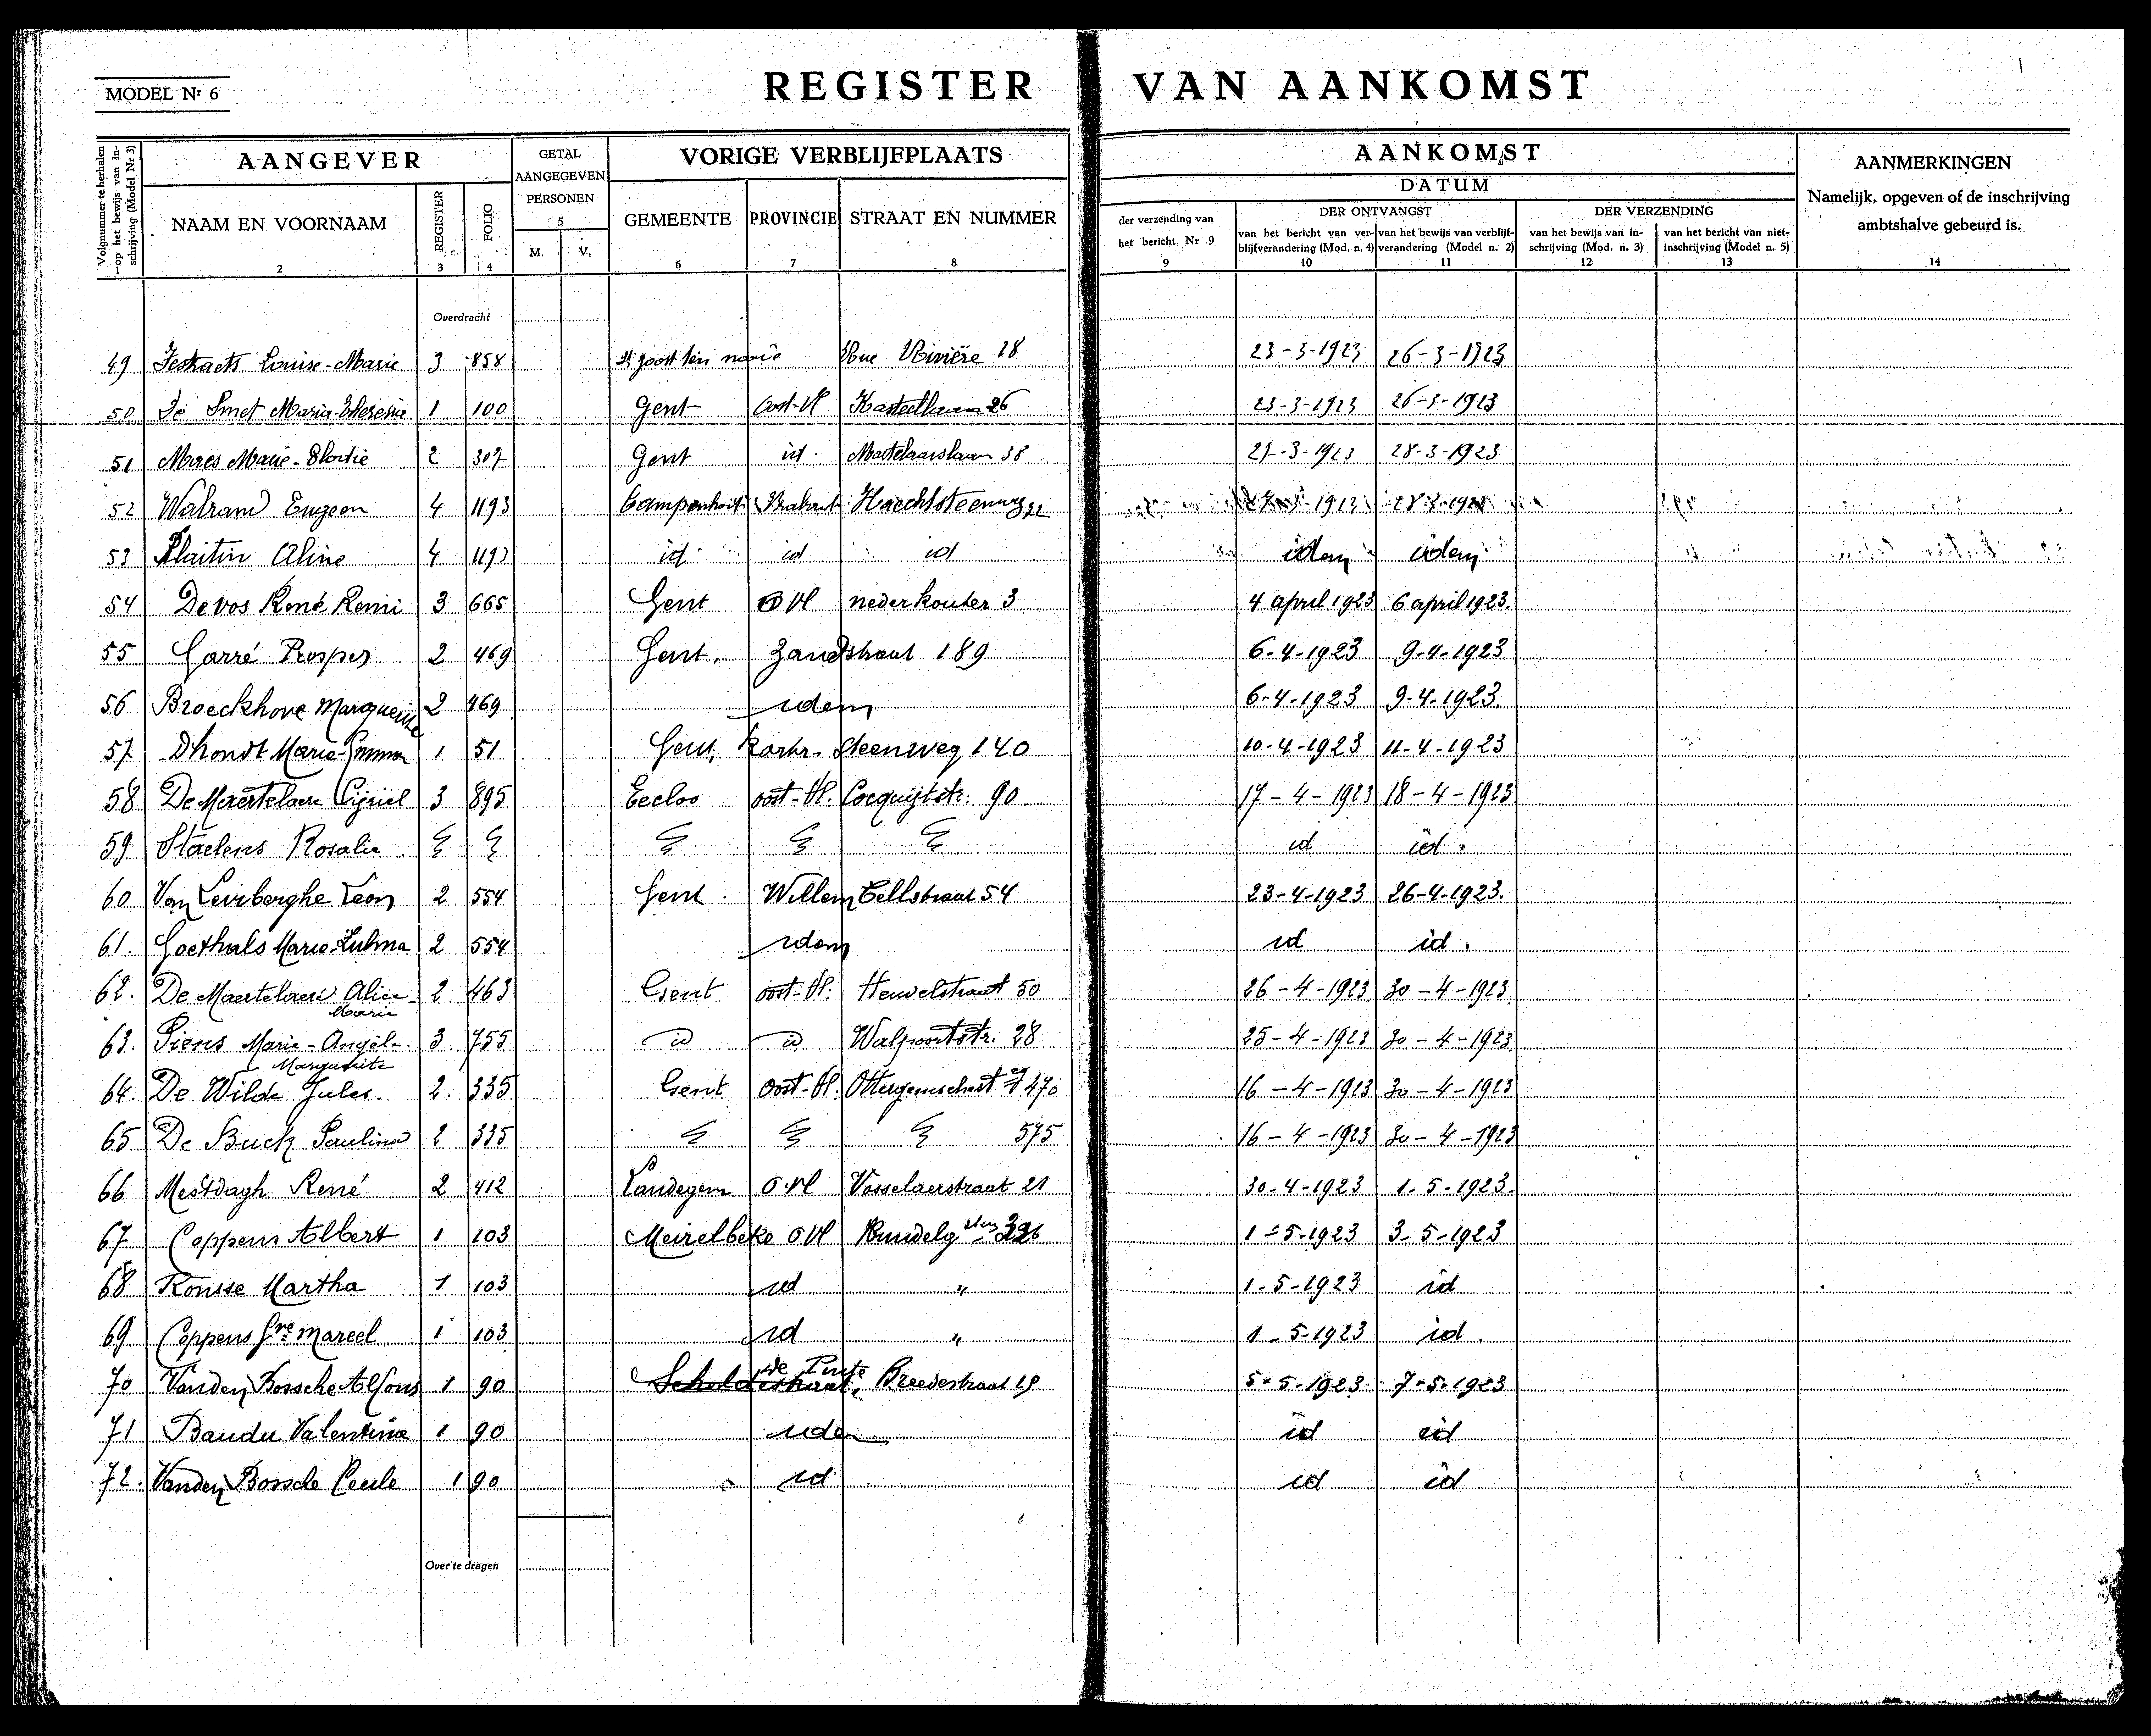 MODEL Nr 6
REGISTER VAN AANKOMST
Volgnummer te herhalen op het bewijs van inschrijving (Model Nr 3)
AANGEVER
NAAM EN VOORNAAM
2
REGISTER
3
FOLIO
4
GETAL AANGEGEVEN PERSONEN
5
M. V.
VORIGE VERBLIJFPLAATS
GEMEENTE
6
PROVINCIE
7
STRAAT EN NUMMER
8
AANKOMST
DATUM
der verzending van het bericht Nr 9
9
DER ONTVANGST
van het bericht van verblijfverandering (Mod. n. 4)
10
van het bewijs van verblijfverandering (Model n. 2)
11
DER VERZENDING
van het bewijs van inschrijving (Mod. n. 3)
12
van het bericht van niet-inschrijving (Model n. 5)
13
AANMERKINGEN
Namelijk, opgeven of de inschrijving ambtshalve gebeurd is.
14
Overdracht
49 Louise-Marie 3 858 Rue Rivière 18 23-3-1923 26-3-1923
50 De Smet Maria-Theresia 1 100 Gent Oost-Vl 26 23-3-1923 26-3-1923
51 Maes Marie- 2 307 Gent id. 38 27-3-1923 28-3-1923
52 Walrand Eugeen 4 1193 Campenhout Brabant Haechtsteenweg 22
53 Plaitin Aline 4 1193 id id id idem idem
54 De vos René Remi 3 665 Gent O Vl nederkouter 3 4 april 1923 6 april 1923.
55 Carré Prosper 2 469 Gent, Zandstraat 189 6-4-1923 9-4-1923
56 Broeckhove Marguerite 2 469 idem 6-4-1923 9-4-1923.
57 Dhondt Marie-Emma 1 51 Gent, Kortr. steenweg 140 10-4-1923 11-4-1923
58 De Maertelaere Cyriel 3 895 Eecloo oost-Vl. Cocquijtstr: 90. 17-4-1923 18-4-1923
59 Staelens Rosalie id id.
60 Van Leirberghe Leon 2 554 Gent. Willem Tellstraat 54 23-4-1923 26-4-1923.
61. Goethals Marie-Zulma 2 554 idem id id.
62. De Maertelaere Alice Marie 2. 463 Gent oost-Vl. Heuvelstraat 50 26-4-1923 30-4-1923
63. Piens Marie-Angèle Marguerite 3. 755 id id Walpoortstr. 28 25-4-1923 30-4-1923
64. De Wilde Jules. 2. 335 Gent oost-Vl. 16-4-1923 30-4-1923
65 De Buck Paulina 2 335 575 16-4-1923 30-4-1923
66 Mestdagh René 2 412 Landegem O.Vl Vosselaerstraat 21 30-4-1923 1-5-1923.
67 Coppens Albert 1 103 Meirelbeke O Vl 1-5-1923 3-5-1923
68 Rousse Martha 1 103 id " 1-5-1923 id
69 Coppens Gve Marcel 1 103 id " 1-5-1923 id.
70 Vanden Bossche Alfons 1 90 Scheldestraat, de Pinte Breedestraat 19 5-5-1923. 7-5-1923
71 Baudu Valentine 1 90 idem id id
72. Vanden Bossche Cecile 1 90 id id id
Over te dragen